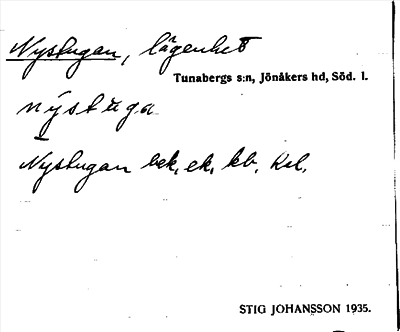 Nystugan, lägenhet
Tunabergs s:n, Jönåkers hd, Söd. l.
nýstuga
Nystugan bek, ek, kb, Ksl.
STIG JOHANSSON 1935.